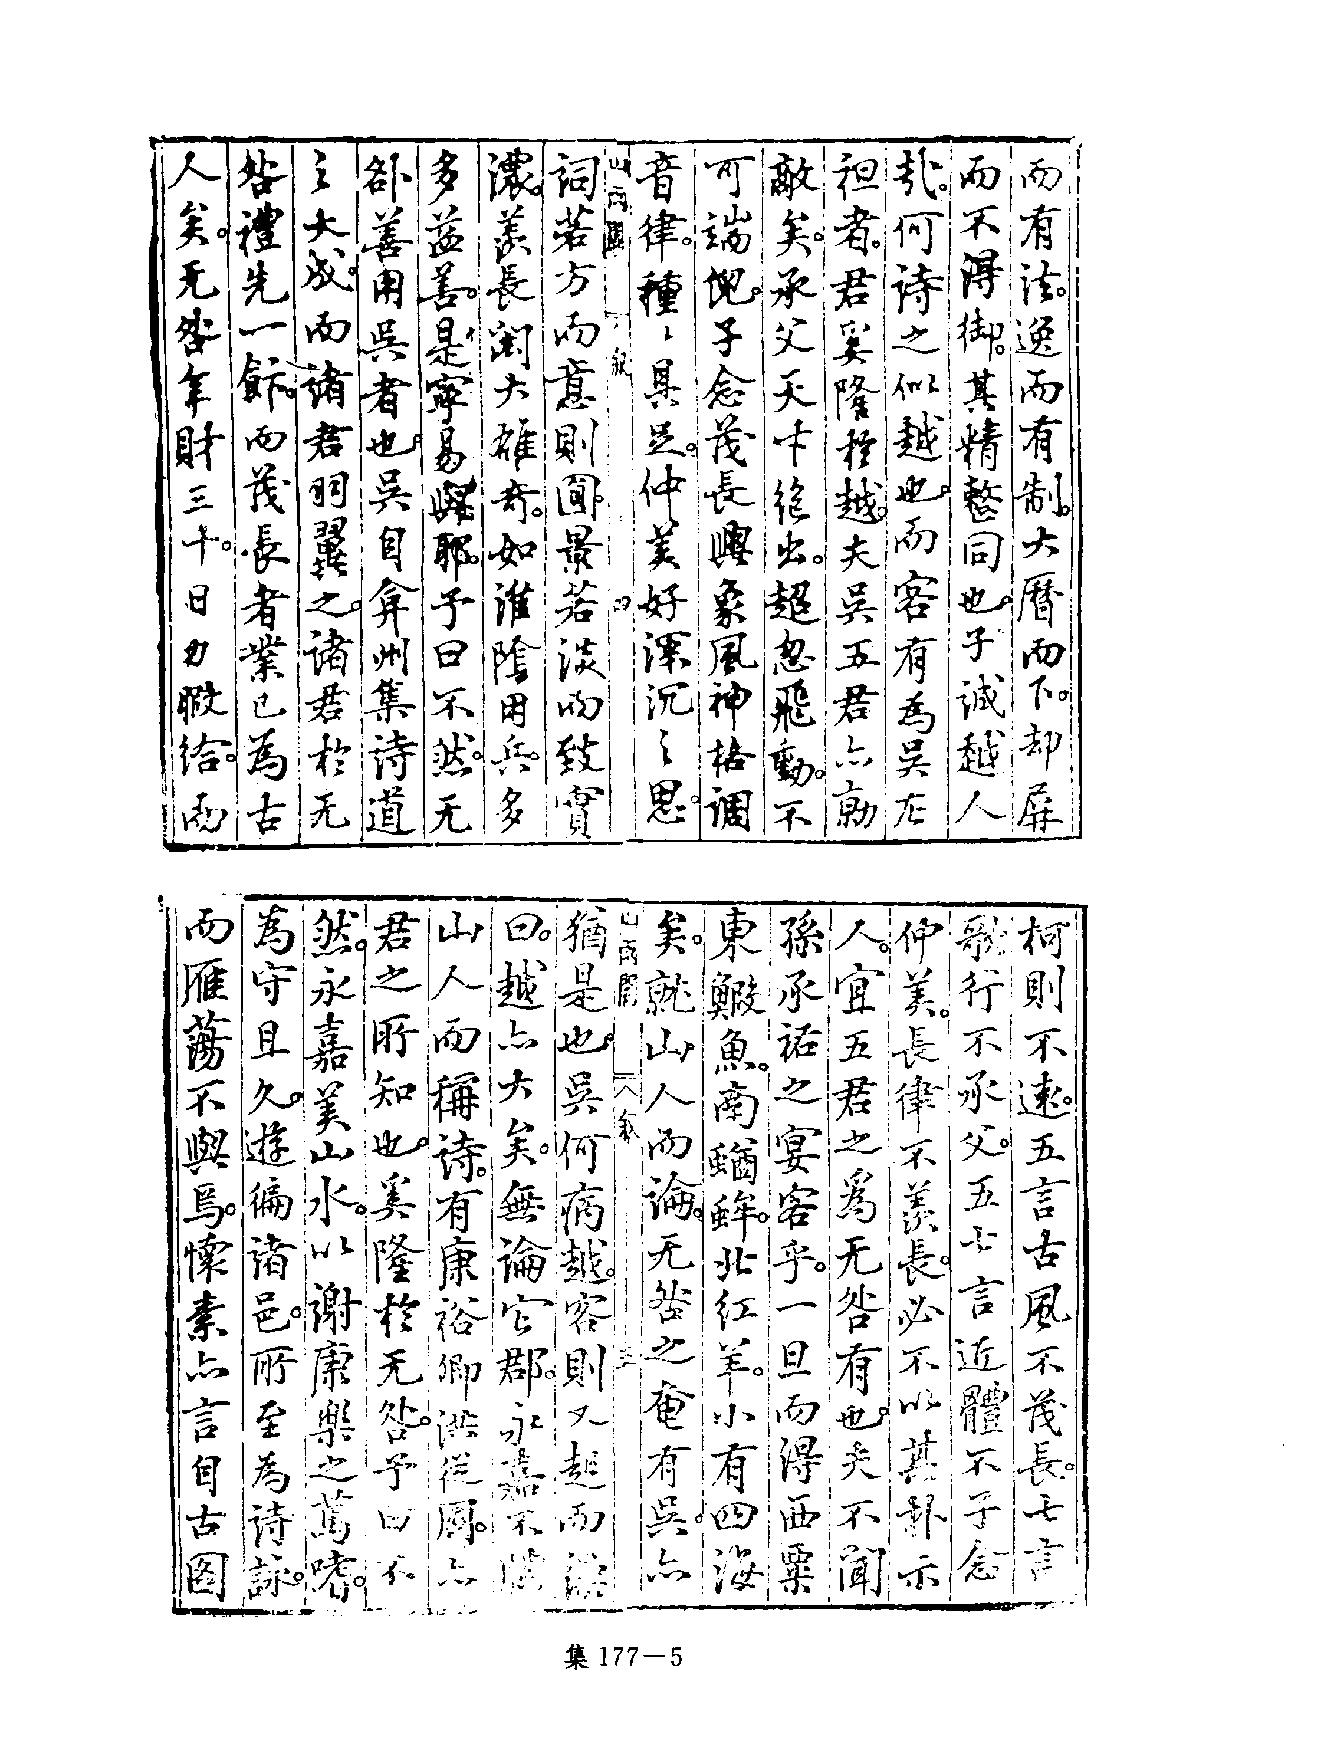 而有法。逸而有制。大曆而下。却屏
而不得御。其精整同也。子誠越人
哉。何詩之似越也。而客有為吳左
袒者。君奚隆於越。夫吳五君亦勍
敵矣。承父天才絕出。超忽飛動。不
可端倪。子念茂長興象風神格調
音律。種〻具足。仲美好深沉之思。
詞若方而意則圓。景若淡而致實
濃。羨長閎大雄奇。如淮陰用兵。多
多益善。是寧易與耶。予曰不然。无
咎善用吳者也。吳自弇州集詩道
之大成。而諸君羽翼之。諸君於无
咎禮先一飯。而茂長者業已為古
人矣。无咎年財三十。日力暇給。而
柯則不遠。五言古風不茂長。七言
歌行不承父。五七言近體不子念
仲美。長律不羨長。必不以其卦示
人。宜五君之為无咎有也。夫不聞
孫承祐之宴客乎。一旦而得西粟
東鰕魚。南蝤蛑。北紅羊。小有四海
矣。就山人而論。无咎之奄有吳。亦
猶是也。吳何病越。客則又起而
曰。越亦大矣。無論它郡。永嘉不
山人而稱詩。有康裕卿洪從周。亦
君之所知也。奚隆於无咎。予曰不
然。永嘉美山水。以謝康樂之篤嗜。
為守且久。遊徧諸邑。所至為詩詠。
而雁蕩不與焉。懷素亦言自古圖
集 177—5